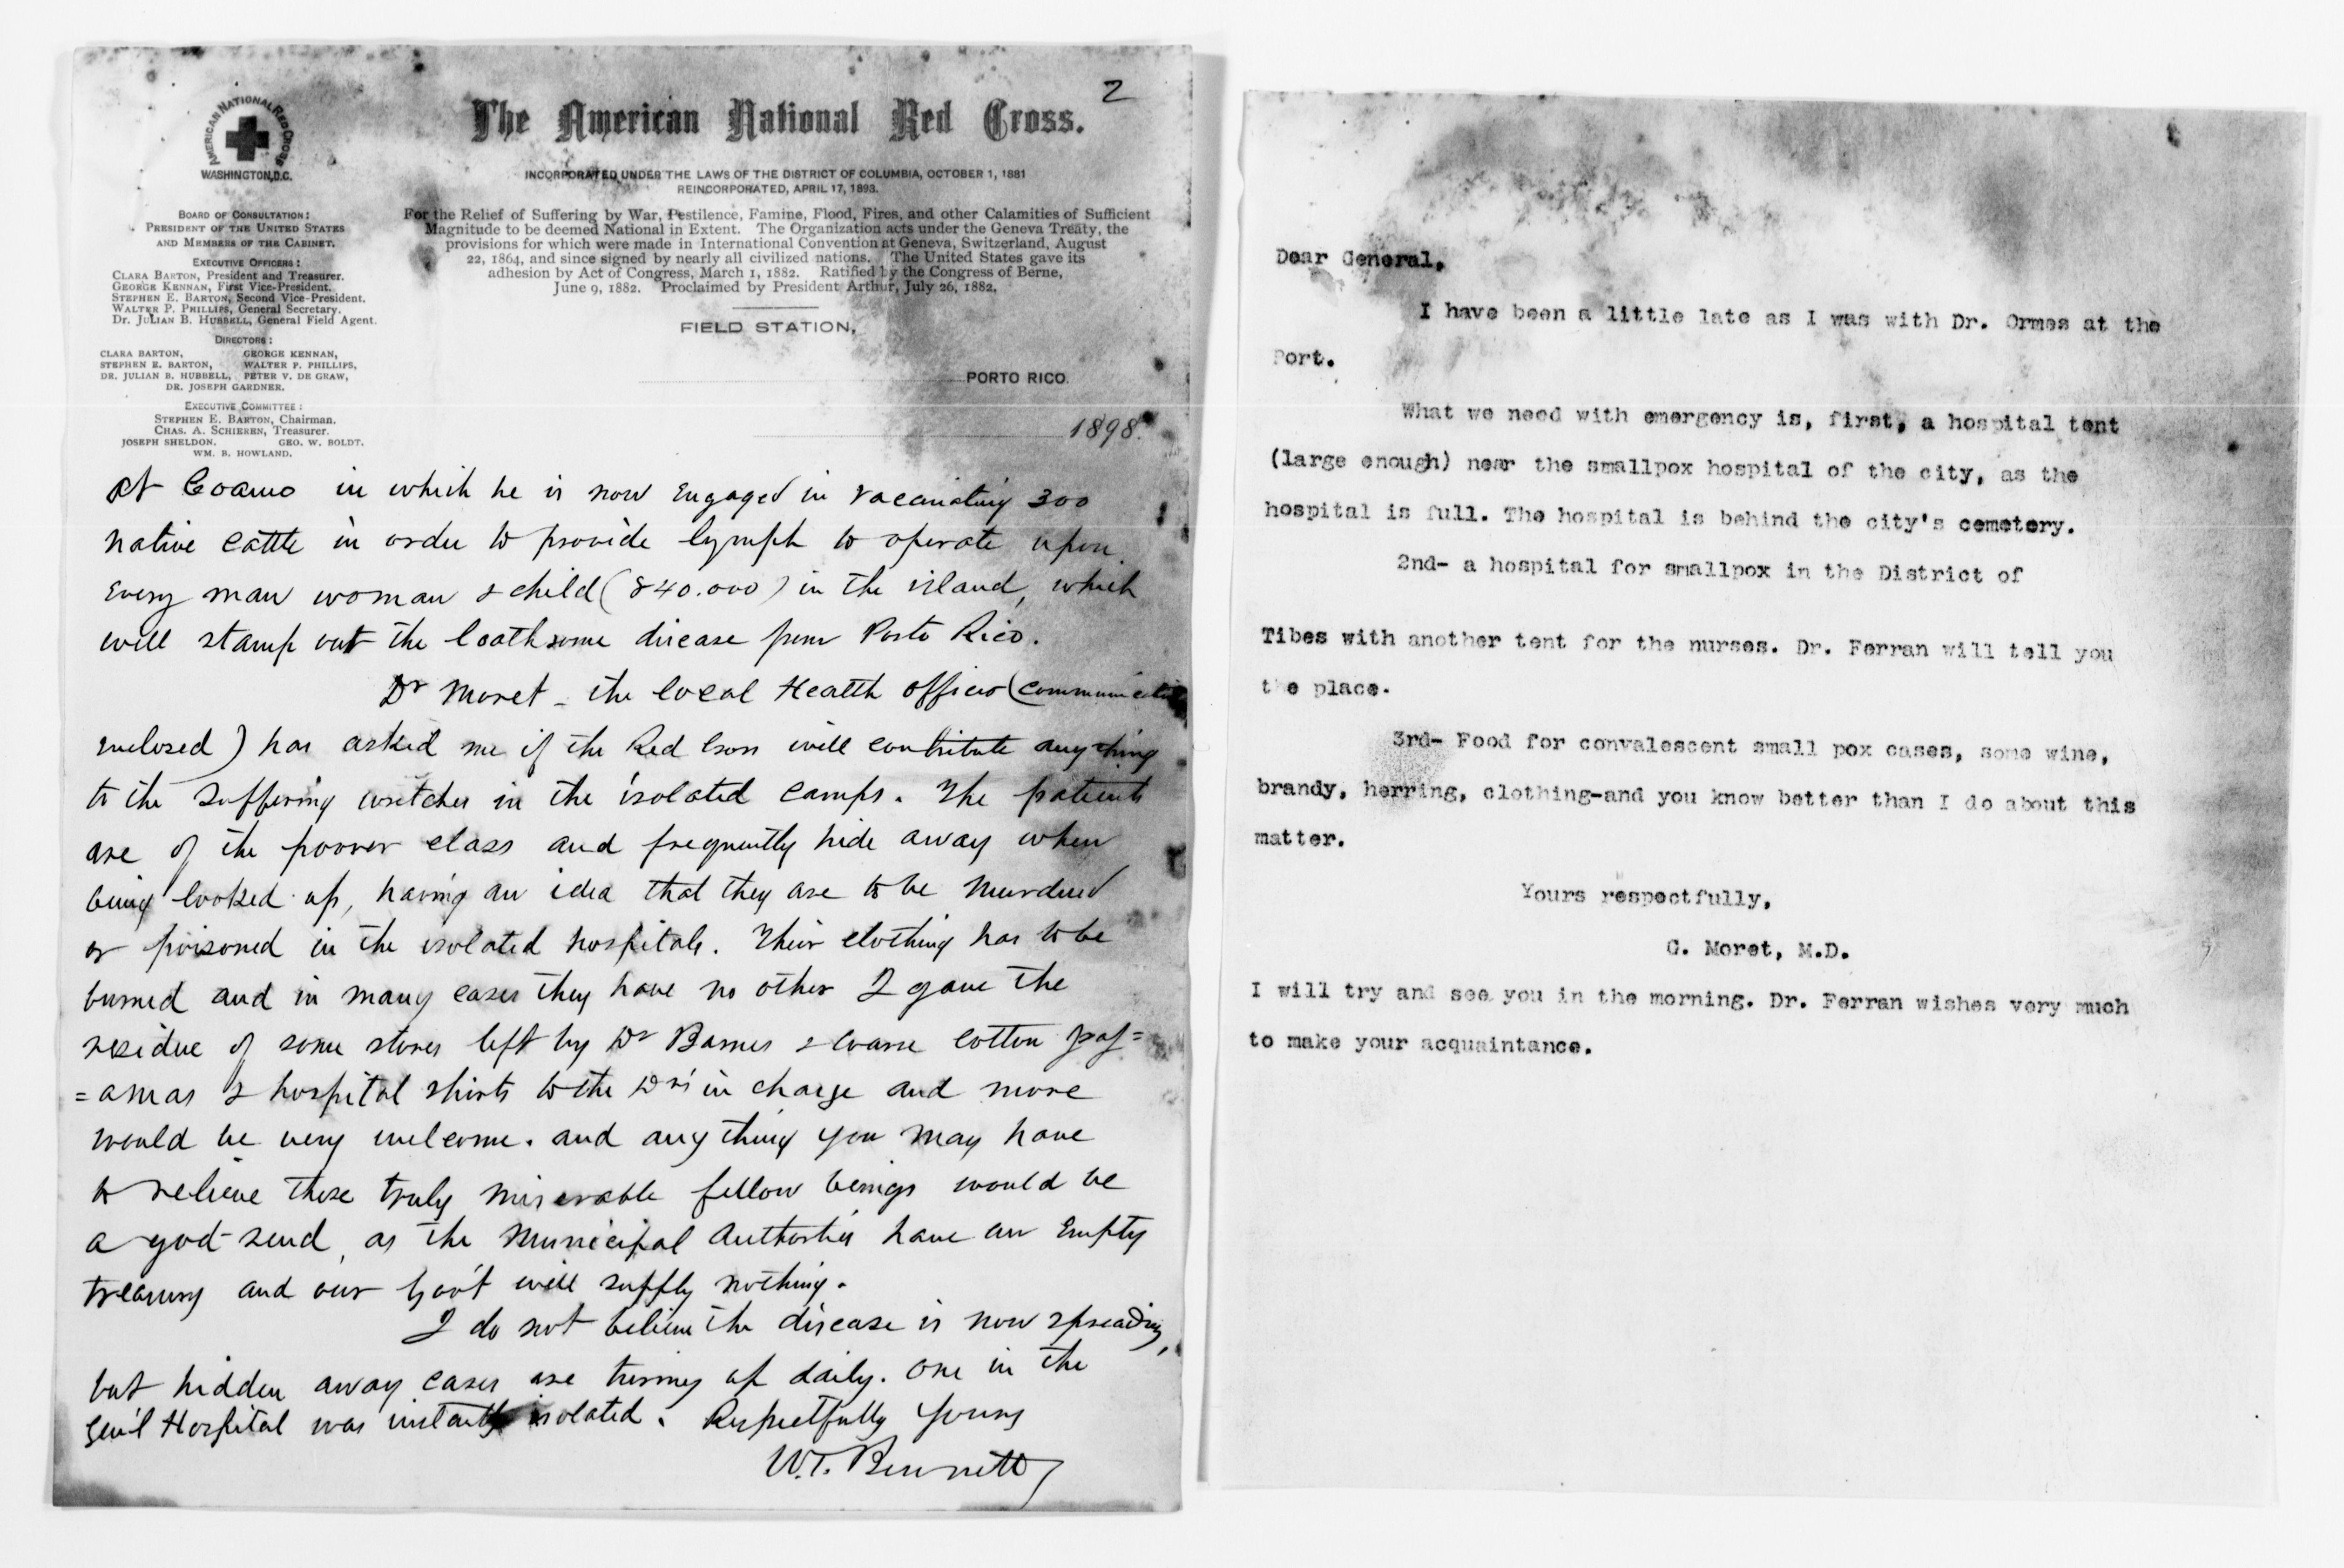 2
The American National Red Cross.
AMERICAN NATIONAL RED CROSS
WASHINGTON, D.C.
INCORPORATED UNDER THE LAWS OF THE DISTRICT OF COLUMBIA, OCTOBER 1, 1881
REINCORPORATED, APRIL 17, 1893.
For the Relief of Suffering by War, Pestilence, Famine, Flood, Fires, and other Calamities of Sufficient
Magnitude to be deemed National in Extent. The Organization acts under the Geneva Treaty, the
provisions for which were made in International Convention at Geneva, Switzerland, August
22, 1864, and since signed by nearly all civilized nations. The United States gave its
adhesion by Act of Congress, March 1, 1882. Ratified by the Congress of Berne,
June 9, 1882. Proclaimed by President Arthur, July 26, 1882.
BOARD OF CONSULTATION:
PRESIDENT OF THE UNITED STATES
AND MEMBERS OF THE CABINET.
EXECUTIVE OFFICERS:
CLARA BARTON, President and Treasurer.
GEORGE KENNAN, First Vice-President.
STEPHEN E. BARTON, Second Vice-President.
WALTER P. PHILLIPS, General Secretary.
Dr. JULIAN B. HUBBELL, General Field Agent.
DIRECTORS:
CLARA BARTON, GEORGE KENNAN,
STEPHEN E. BARTON, WALTER P. PHILLIPS,
DR. JULIAN B. HUBBELL, PETER V. DE GRAW,
DR. JOSEPH GARDNER.
EXECUTIVE COMMITTEE:
STEPHEN E. BARTON, Chairman.
CHAS. A. SCHIEREN, Treasurer.
JOSEPH SHELDON. GEO. W. BOLDT.
WM. B. HOWLAND.
FIELD STATION,
PORTO RICO.
1898.
At Coamo in which he is now engaged in vaccinating 300
native cattle in order to provide lymph to operate upon
every man woman & child (840.000) in the island, which
will stamp out the loathsome disease from Porto Rico.
Dr Moret - the local Health officer (communication
enclosed) has asked me if the Red Cross will contribute anything
to the suffering wretches in the isolated camps. The patients
are of the poorer class and frequently hide away when
being looked up, having an idea that they are to be murdered
or poisoned in the isolated hospitals. Their clothing has to be
burned and in many cases they have no other I gave the
residue of some stores left by Dr Barnes & coarse cotton paj=
=amas & hospital shirts to the Drs in charge and more
would be very welcome. and anything you may have
to relieve these truly miserable fellow beings would be
a god-send, as the Municipal Authorties have an Empty
treasury and our Gov't will supply nothing.
I do not believe the disease is now spreading,
but hidden away cases are turning up daily. one in the
Gen'l Hospital was instantly isolated. Respectfully Yours
W.T. Bennett
Dear General,
I have been a little late as I was with Dr. Ormes at the
Port.
What we need with emergency is, first, a hospital tent
(large enough) near the smallpox hospital of the city, as the
hospital is full. The hospital is behind the city's cemetery.
2nd- a hospital for smallpox in the District of
Tibes with another tent for the nurses. Dr. Ferran will tell you
the place.
3rd- Food for convalescent small pox cases, some wine,
brandy, herring, clothing-and you know better than I do about this
matter.
Yours respectfully,
G. Moret, M.D.
I will try and see you in the morning. Dr. Ferran wishes very much
to make your acquaintance.